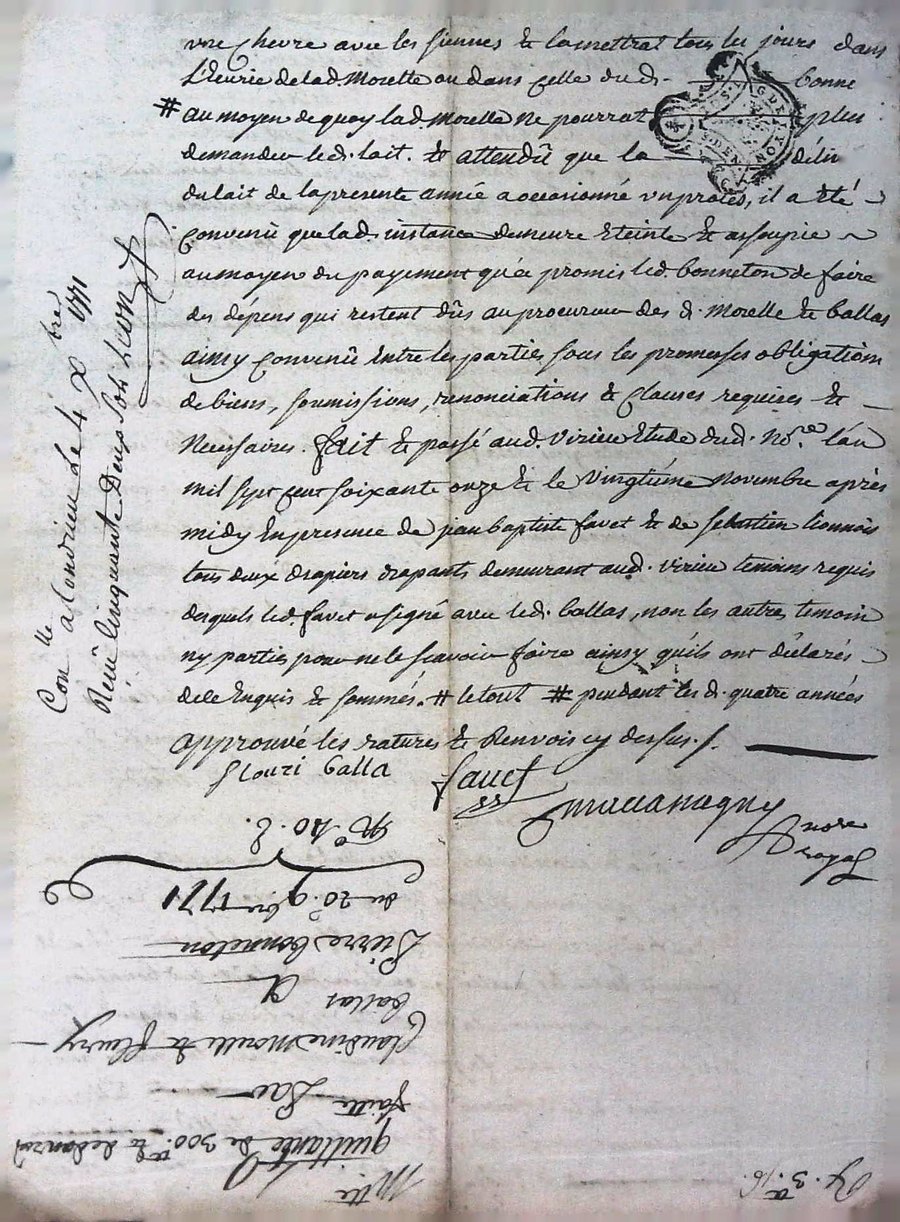 une Chevre avec les siennes & la mettrat tous les jours dans
L'Ecurie de lad. Morelle ou dans celle dud. bonne
# au moyen de quoy lad. Morelle ne pourrat plus
demander led. lait. Et attendû que la déliv
du lait de la presente année a occasionné un procès, il a été
Convenû que lad. instance demeure éteinte & assoupie
au moyen du payement qu'a promis led. bonneton de faire
des dépens qui restent dûs au procureur des d. Morelle & ballas
ainsy Convenû Entre les parties sous les promesses obligations
de biens, soumissions, renonciations & Clauses requises &
Necessaires. fait & passé aud. Virieu Etude dud. no.re l'an
mil sept cent soixante onze & le vingtième novembre après
midy En presence de jean baptiste favet & de sebastien lionnois
tous deux drapiers drapants demeurant aud. virieu temoins requis
desquels led. favet a signé avec led. ballas, non les autres temoin
ny parties pour ne le scavoir faire ainsy qu'ils ont déclarés
de ce Enquis & sommés. # le tout # pendant les d. quatre années
approuvé les ratures & Renvois cy dessus./.
flouri balla
favet
no.re
royal
Con.lle a Condrieu Le 4 X.bre 1771
Reçû Cinquante Deux sols
GDE LYON
N.o 40. 8.
du 20. 9bre 1771
Pierre bonneton
&
ballas
Claudine Morelle & fleury
faitte Par
quittance de 300.tt &
M.tte
3.tt 16.